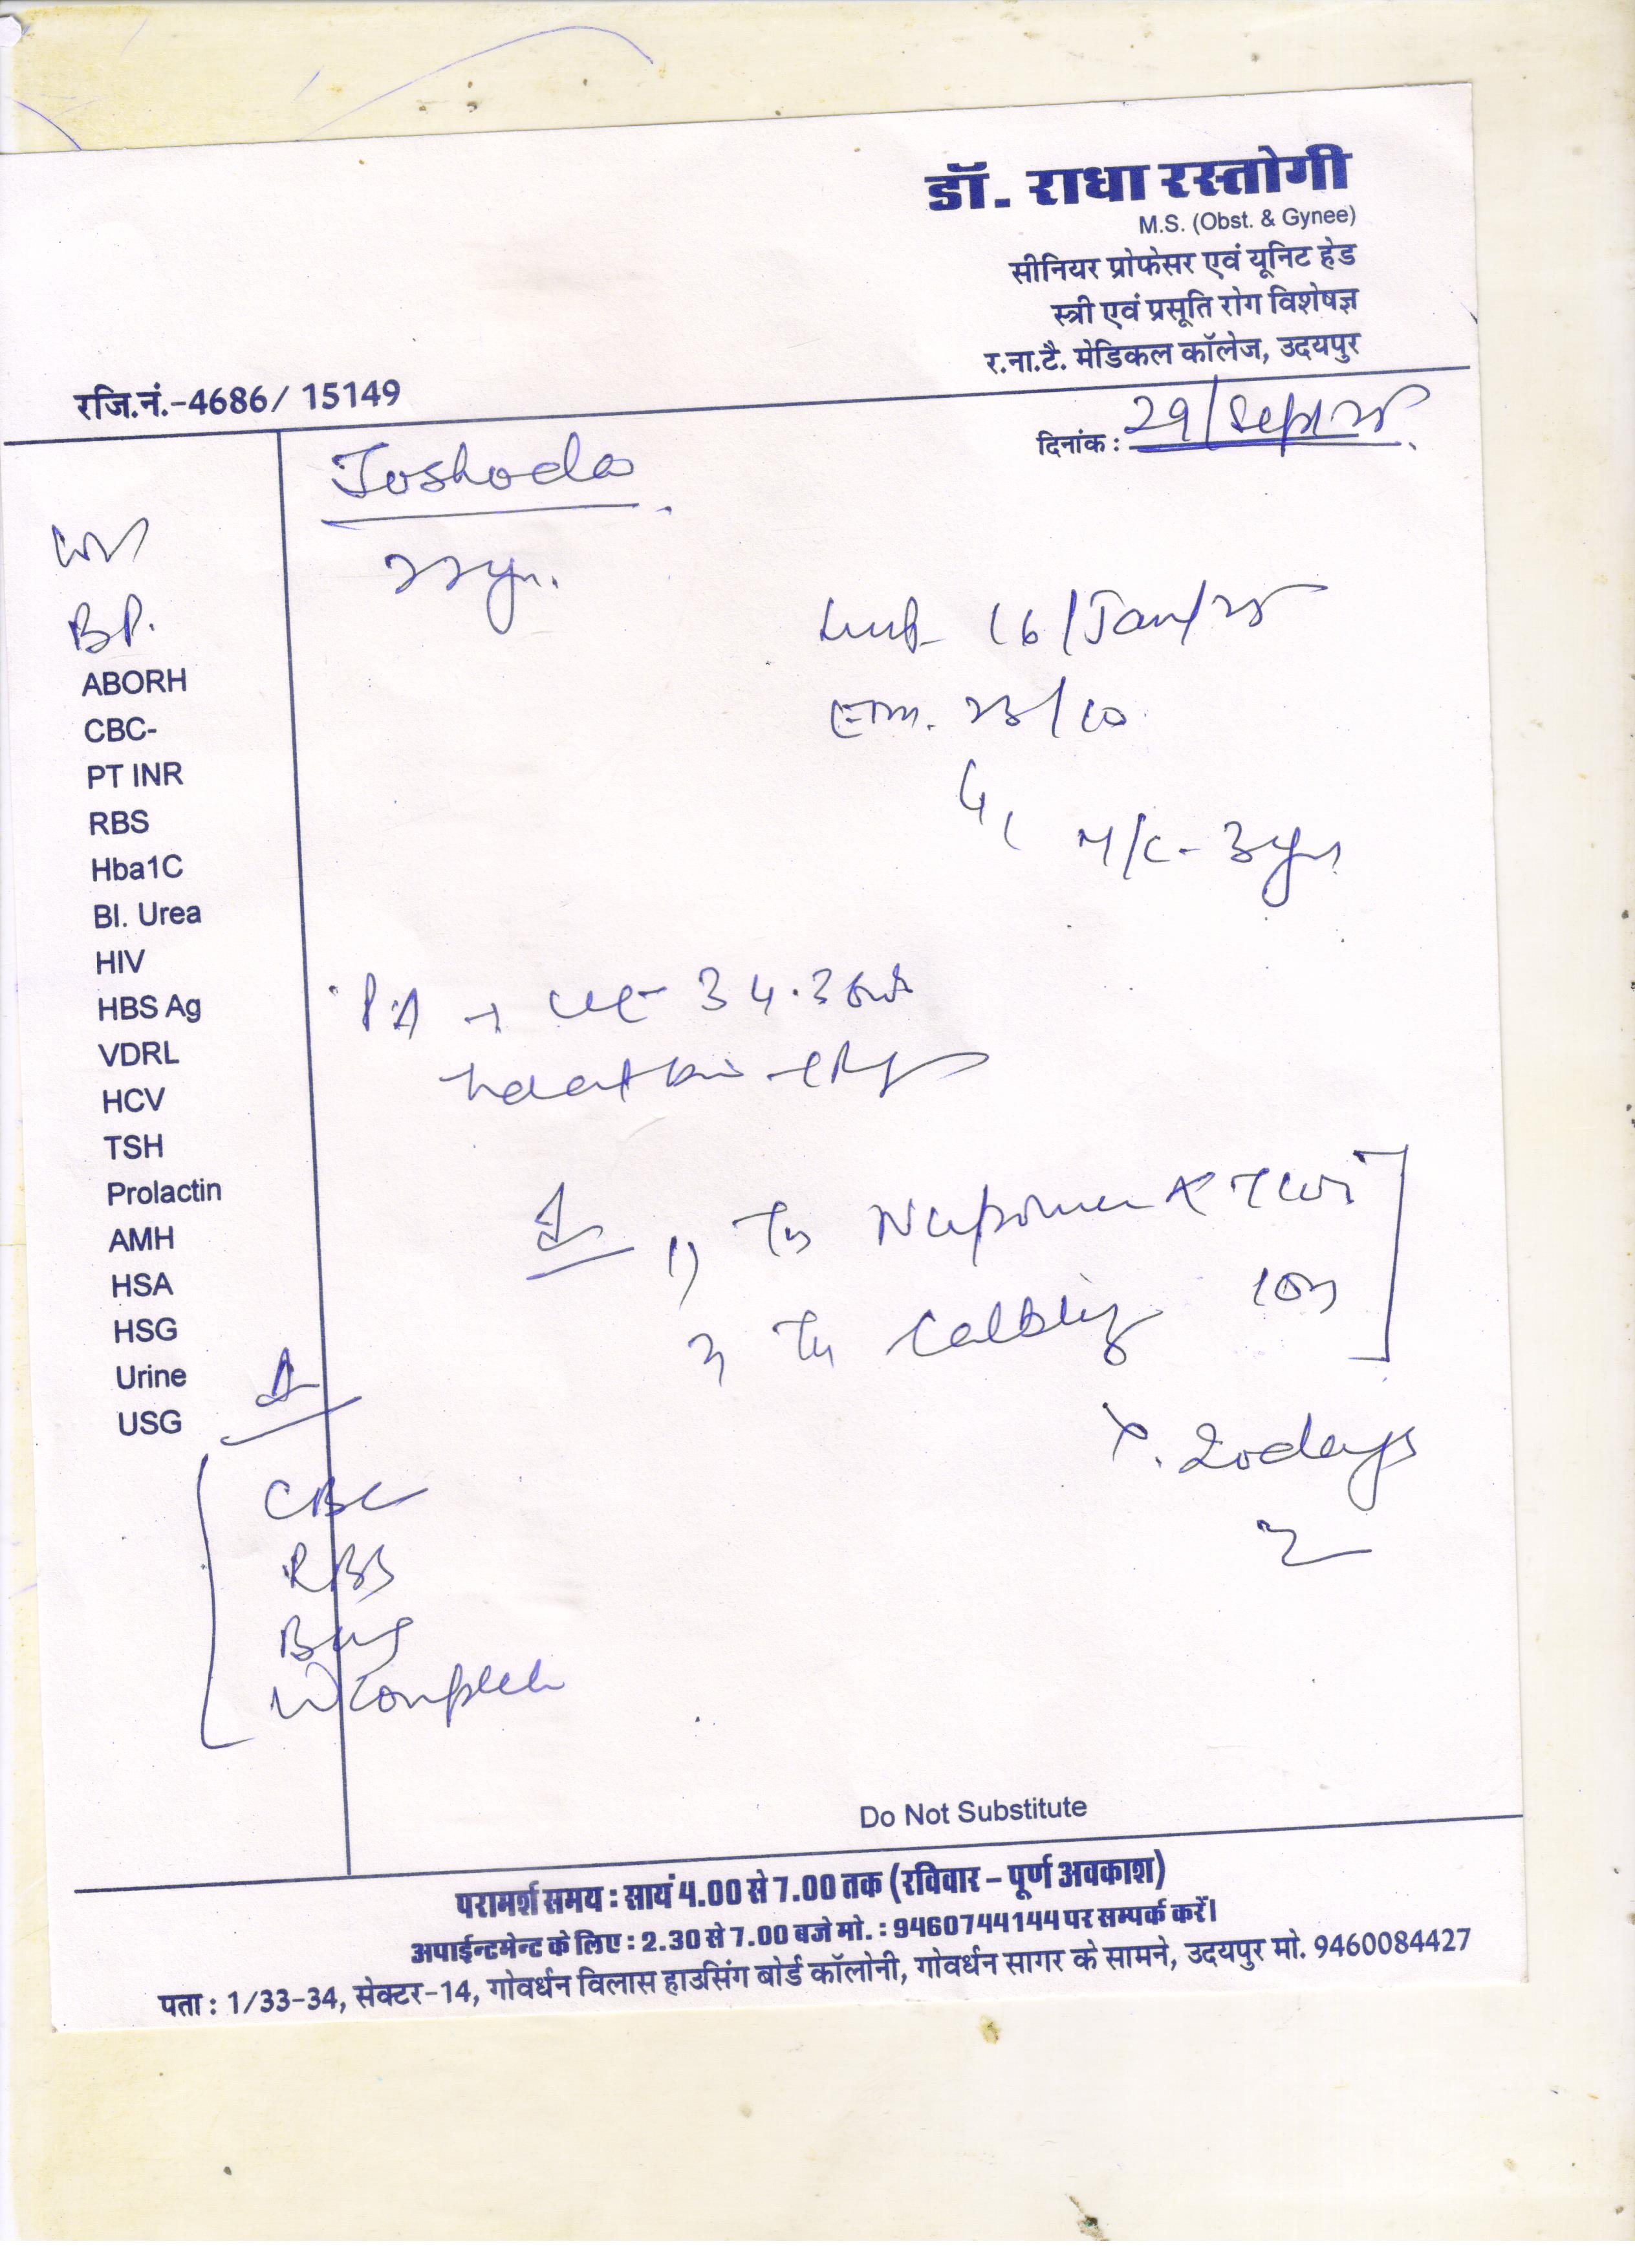 डॉ. राधा रस्तोगी
M.S. (Obst. & Gynee)
सीनियर प्रोफेसर एवं यूनिट हेड
स्त्री एवं प्रसूति रोग विशेषज्ञ
र.ना.टै. मेडिकल कॉलेज, उदयपुर
रजि.नं.-4686/ 15149
दिनांक : 29/Sept/25
Joshoda
22yr.
BP.
ABORH
CBC-
PT INR
RBS
Hba1C
Bl. Urea
HIV
HBS Ag
VDRL
HCV
TSH
Prolactin
AMH
HSA
HSG
Urine
USG
Lmp- 16/Jan/25
23/10
G1 M/C- 3yrs
PA → 34.36
1)
2)
x. 20days
CBC
RBS
Complete
Do Not Substitute
परामर्श समय : सायं 4.00 से 7.00 तक (रविवार – पूर्ण अवकाश)
अपाईन्टमेन्ट के लिए : 2.30 से 7.00 बजे मो. : 9460744144 पर सम्पर्क करें।
पता : 1/33-34, सेक्टर-14, गोवर्धन विलास हाउसिंग बोर्ड कॉलोनी, गोवर्धन सागर के सामने, उदयपुर मो. 9460084427